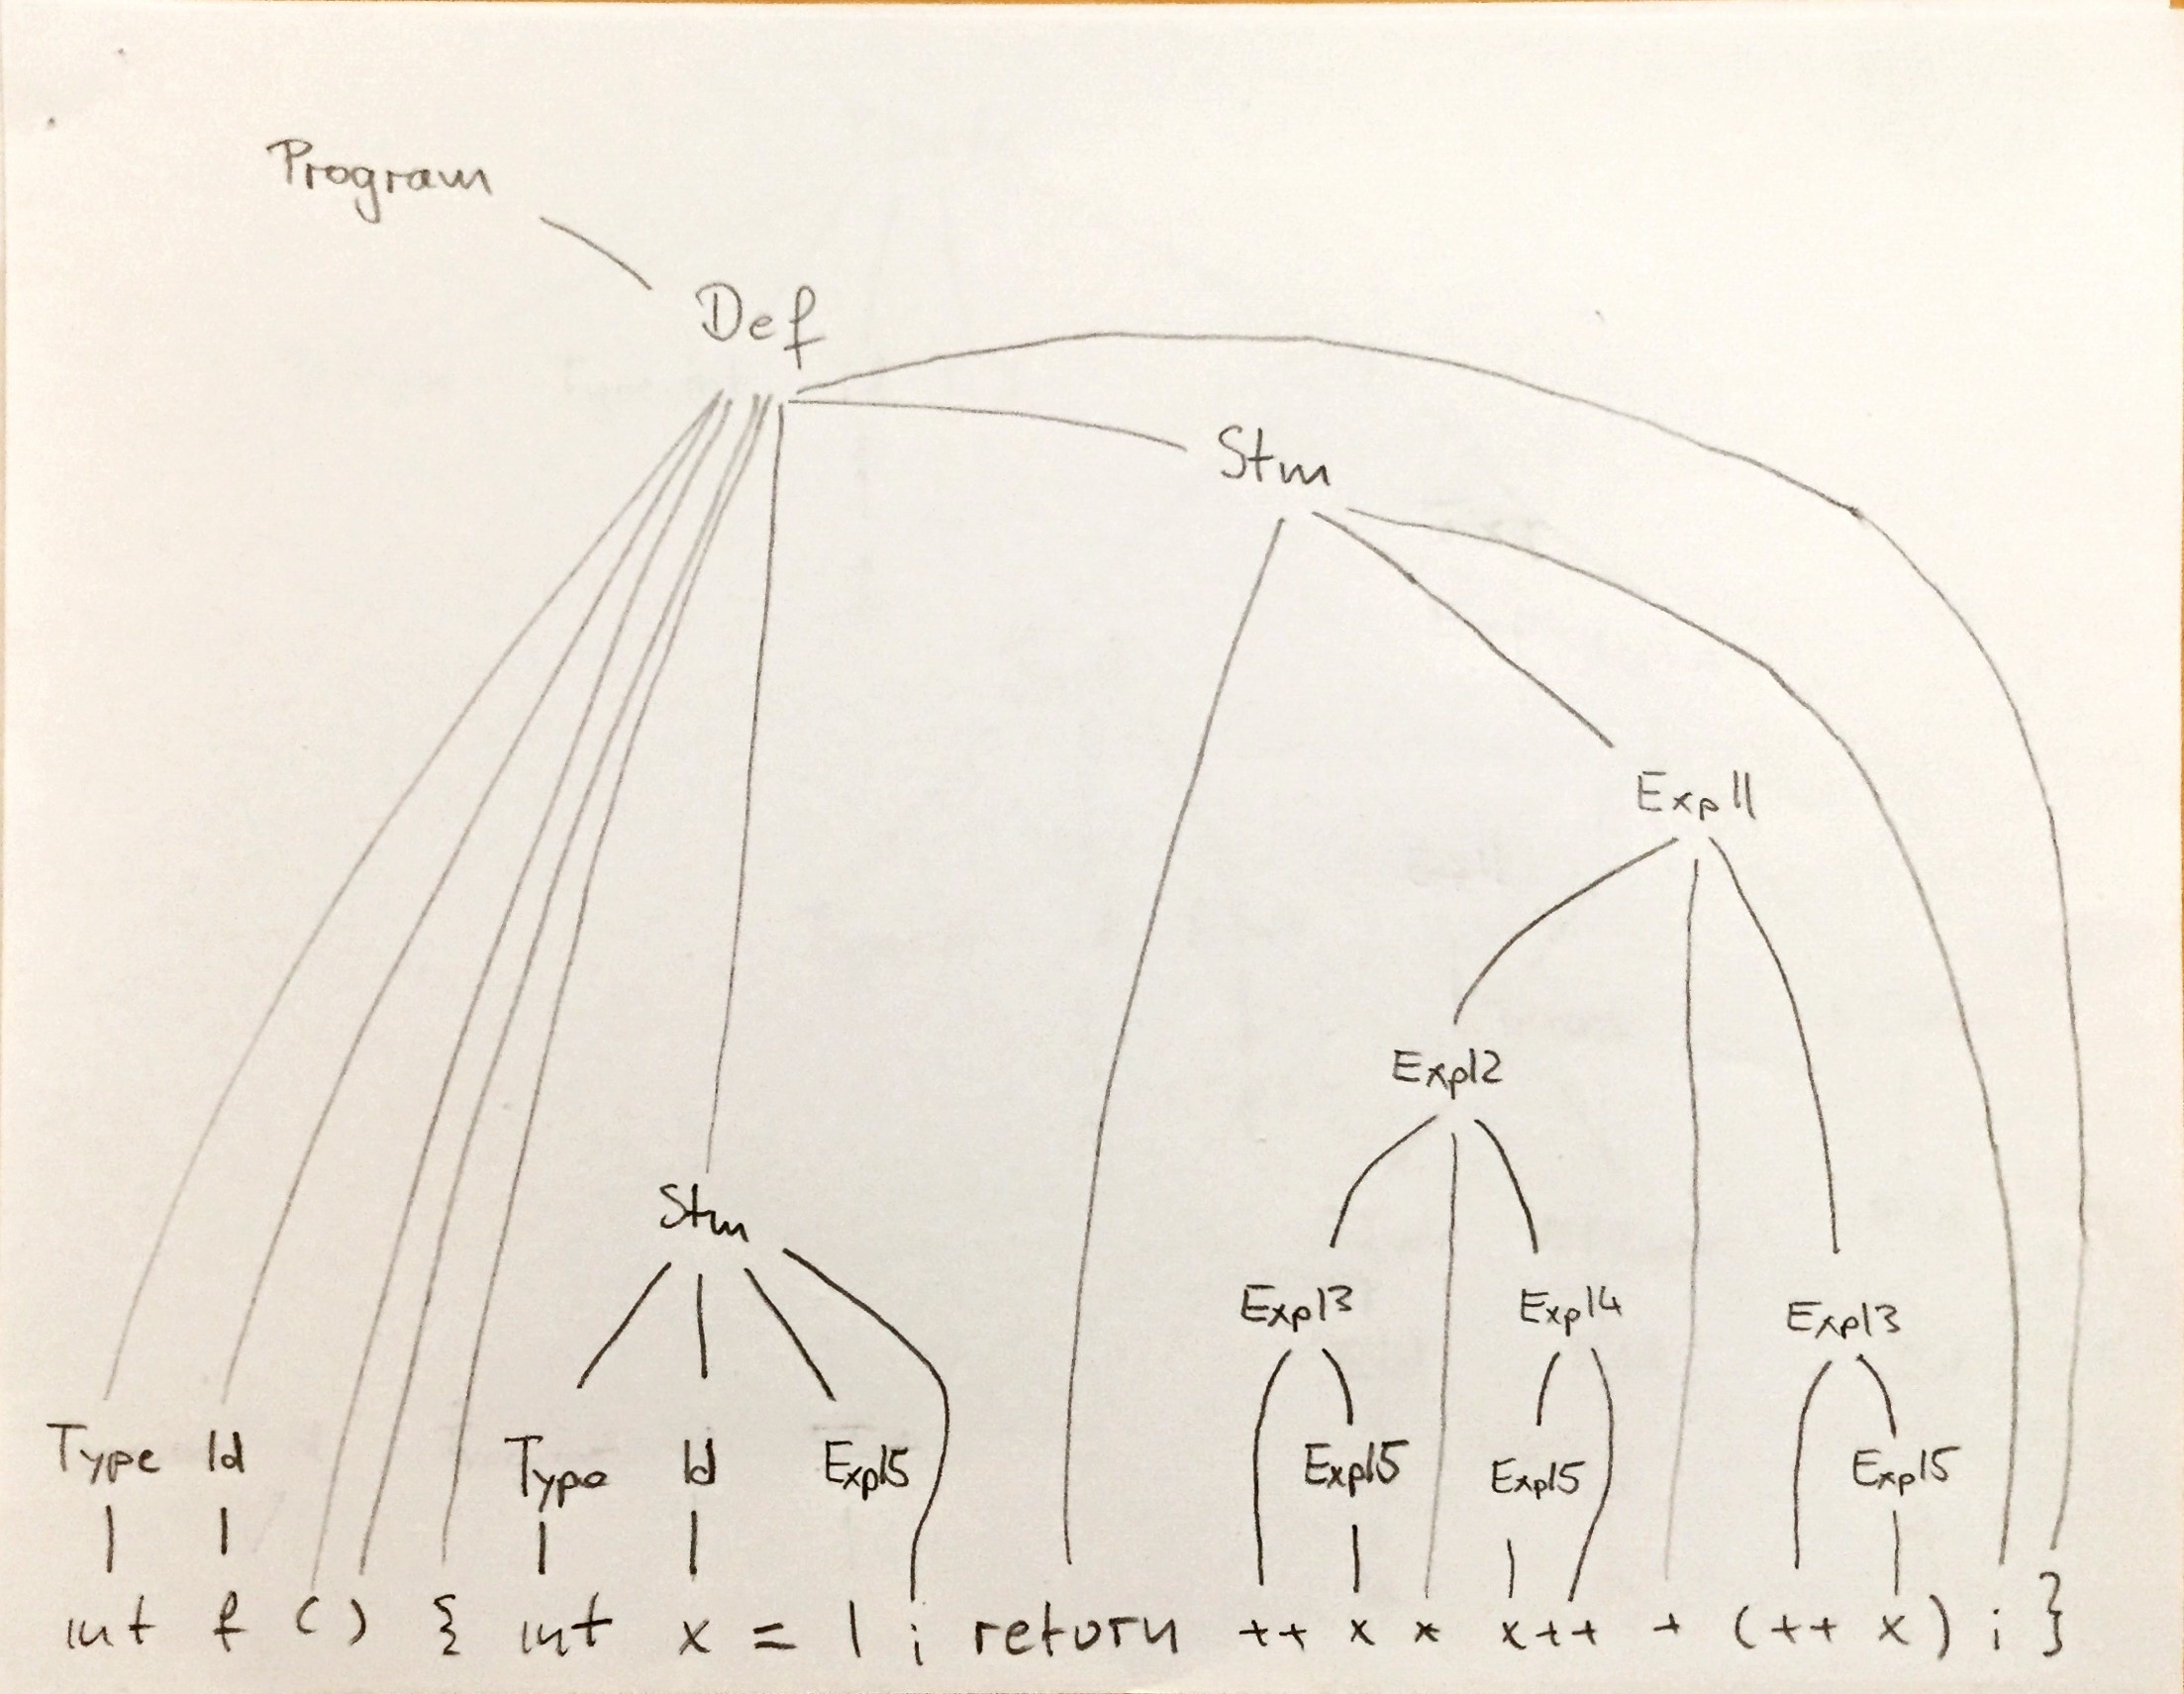 Program
Def
Stm
Exp11
Exp12
Stm
Exp13 Exp14 Exp13
Type Id Type Id Exp15 Exp15 Exp15 Exp15
int f ( ) { int x = 1 ; return ++ x * x++ + (++ x) ; }